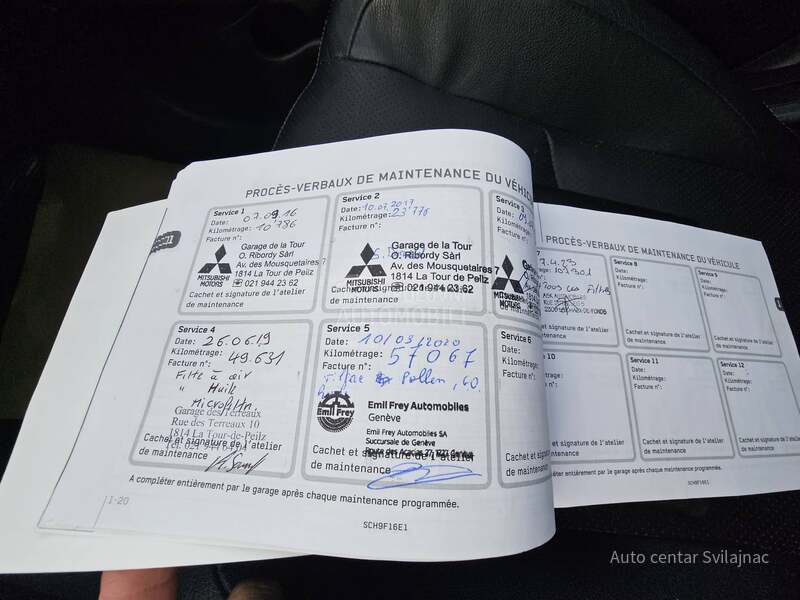 PROCÈS-VERBAUX DE MAINTENANCE DU VÉHIC
Service 1
Date: 07.09.16
Kilométrage: 10'786
Facture n°:
MITSUBISHI
MOTORS
Garage de la Tour
O. Ribordy Sàrl
Av. des Mousquetaires 7
1814 La Tour de Peilz
☎ 021 944 23 62
Cachet et signature de l'atelier
de maintenance
Service 2
Date: 10.07.2017
Kilométrage: 23'776
Facture n°:
MITSUBISHI
MOTORS
Garage de la Tour
O. Ribordy Sàrl
Av. des Mousquetaires 7
1814 La Tour de Peilz
☎ 021 944 23 62
de maintenance
Service 3
Date:
Kilométrage:
Facture n°:
MITSUBISHI
MOTORS
Cachet et
de mainten
Service 4
Date: 26.06.19
Kilométrage: 49.631
Facture n°:
Filtre à air
" Huile
Microfiltr.
Garage des Terreaux
Rue des Terreaux 10
1814 La Tour-de-Peilz
Cachet et signature de l'atelier
de maintenance
Service 5
Date: 10/03/2020
Kilométrage: 57067
Facture n°:
Pollen
Emil Frey
Emil Frey Automobiles
Genève
Emil Frey Automobiles SA
Succursale de Genève
Route des Acacias 27, 1227 Genève
Cachet et signature de l'atelier
de maintenance
Service 6
Date:
Kilométrage
Facture n°:
Cachet et
de mainte
A compléter entièrement par le garage après chaque maintenance programmée.
I-20
SCH9F16E1
PROCÈS-VERBAUX DE MAINTENANCE DU VÉHICULE
Service 8
Date:
Kilométrage:
Facture n°:
Cachet et signature de l'atelier
de maintenance
Service 9
Date:
Kilométrage:
Facture n°:
Cachet et signature de l'atelier
de maintenance
10
ge:
signature de l'atelier
nance
Service 11
Date:
Kilométrage:
Facture n°:
Cachet et signature de l'atelier
de maintenance
Service 12
Date:
Kilométrage:
Facture n°:
Cachet et signature de l'atelier
de maintenance
éter entièrement par le garage après chaque maintenance programmée.
SCH9F16E1
Auto centar Svilajnac